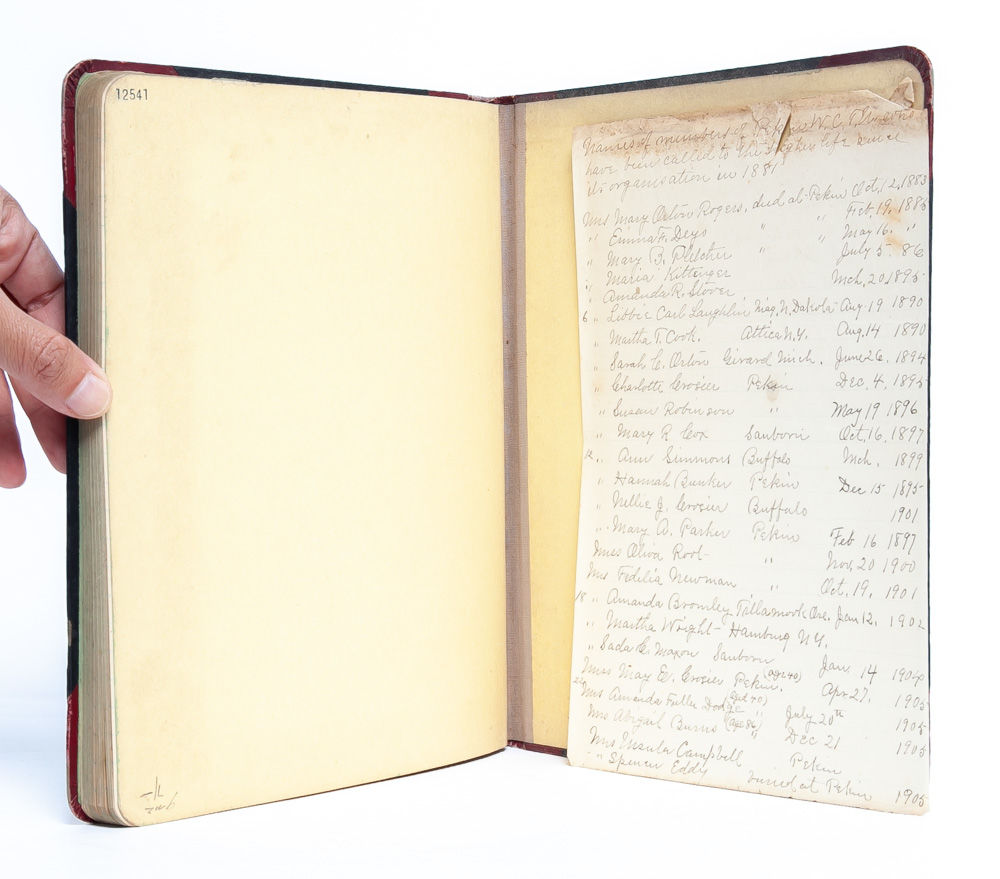 12541
Names of members of Pekin W.C.T.U. who
have been called to the higher life since
its organisation in 1881
Mrs Mary Orton Rogers, died at Pekin Oct, 12, 1883
" Emma F. Deyo " Feb 19, 1885
" Mary B. Pletcher " " May 16. "
" Maria Kittenger July 5 - 86
" Amanda R. Stover Mch, 20, 1895
6 " Libbie Carl Laughlin N. Dakota - Aug 19 1890
" Martha T. Cook. Attica N.Y. Aug. 14 1890
" Sarah C. Orton Girard Mich. June 26. 1894
" Charlotte Crosier Pekin Dec. 4, 1895
" Susan Robinson " May 19 1896
" Mary R Cox Sanborn Oct, 16, 1897
12 " Ann Simmons Buffalo Mch. 1899
" Hannah Bunker Pekin Dec 15 1895
" Nellie J. Crosier Buffalo 1901
" Mary A. Parker Pekin Feb 16 1897
Miss Oliva Root - " Nov, 20 1900
Mrs Fedilia Newman " Oct. 19, 1901
18 " Amanda Bromley Tillamook Ore. Jan 12, 1902
" Martha Wright - Hamburg N.Y.
" Sada C. Maxon Sanborn Jan. 14 1904
Miss May E. Crosier Pekin. (age 40) Apr 27, 1905
Mrs Amanda Fuller Dodge July 20th 1905
Mrs Abigail Burns (age 86) " Dec 21 1905
Mrs Ursula Campbell Pekin
" Spencer Eddy buried at Pekin 1905